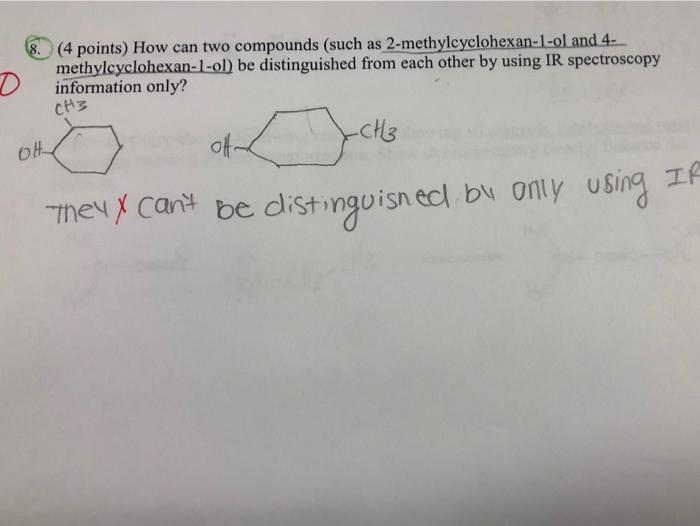 8. (4 points) How can two compounds (such as 2-methylcyclohexan-1-ol and 4-
methylcyclohexan-1-ol) be distinguished from each other by using IR spectroscopy
information only?
CH3
OH
OH
CH3
They X can't be distinguished by only using IR